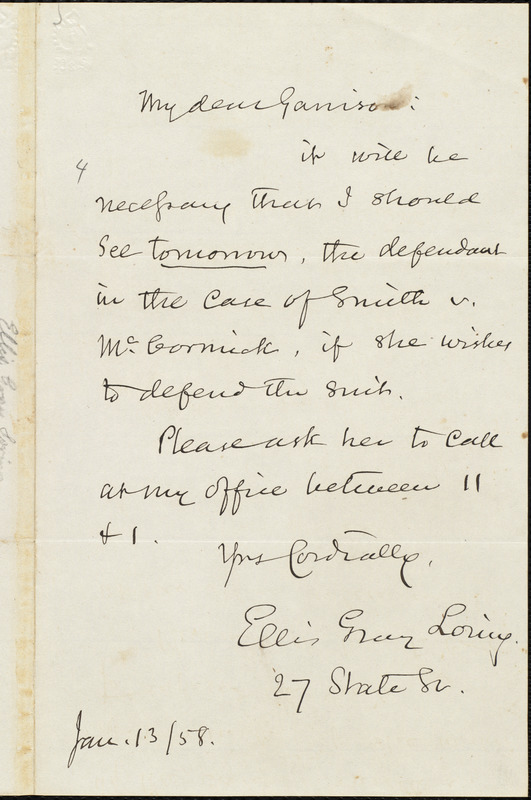 My dear Garrison:
it will be
4
necessary that I should
see tomorrow, the defendant
in the case of Smith v.
McCormick, if she wishes
to defend the suit.
Please ask her to call
at my office between 11
& 1.
Yrs Cordially,
Ellis Gray Loring.
27 State St.
Jan. 13/58.
Ellis Gray Loring